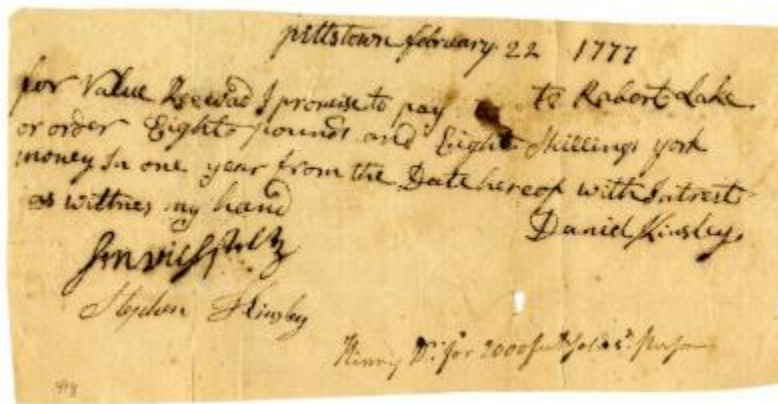 pittstown february 22 1777
for Value Receivad I promise to pay to Robert Lake
or order Eight pounds and Eight Shillings york
money In one year from the Date hereof with Intrest
as wittnes my hand
Daniel Kinsley
Stephen Kinsley
for 2000